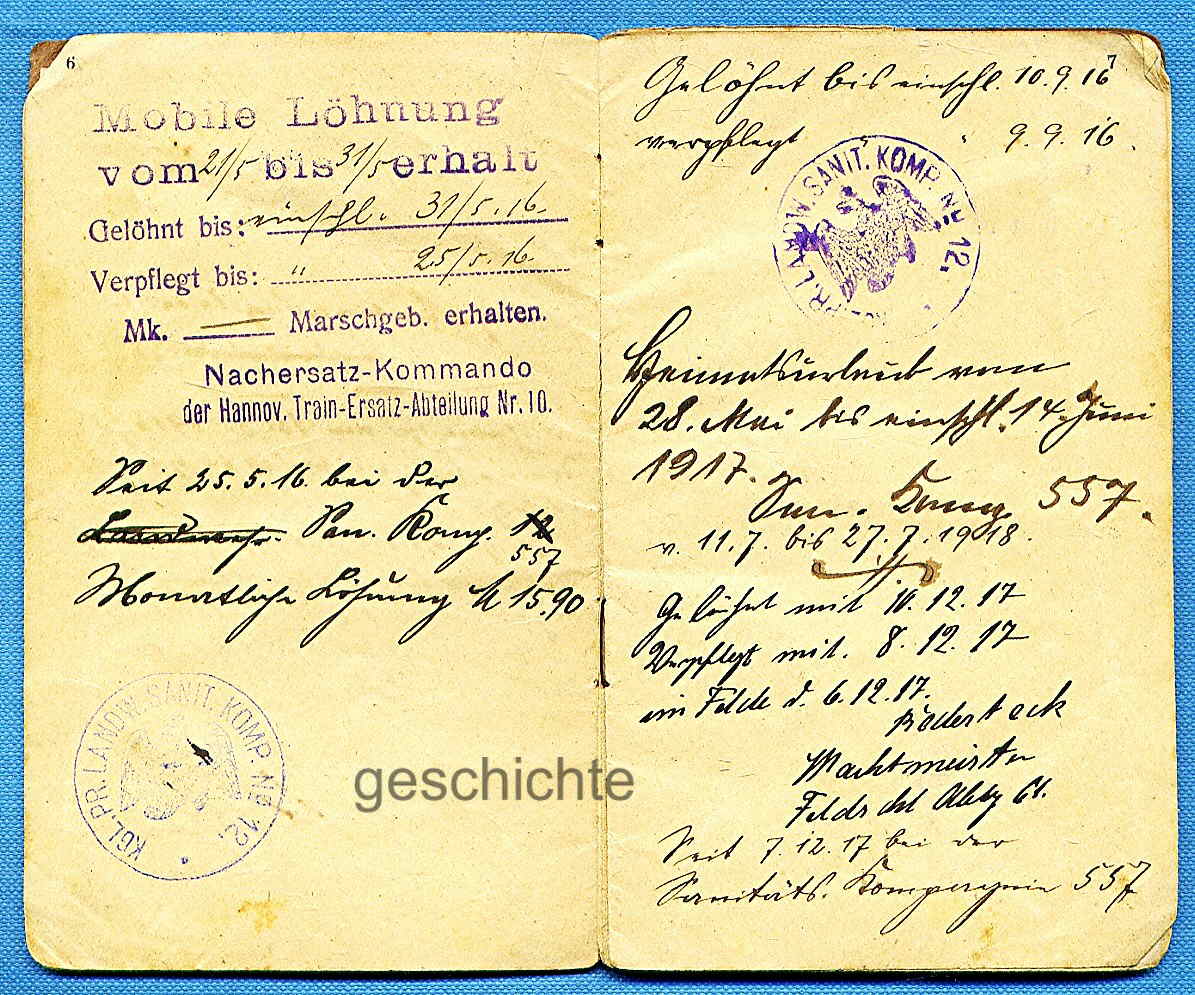 6
Mobile Löhnung
vom 21/5 bis 31/5 erhalt
Gelöhnt bis: einschl. 31/5.16.
Verpflegt bis: " 25/5.16.
Mk. — Marschgeb. erhalten.
Nachersatz-Kommando
der Hannov. Train-Ersatz-Abteilung Nr. 10.
Seit 25.5.16. bei der
Landwehr. San. Komp. 12
557
Monatliche Löhnung M 15.90
KGL. PR. LANDW. SANIT. KOMP. No 12.
geschichte
7
Gelöhnt bis einschl. 10.9.16
verpflegt " 9.9.16.
KGL. PR. LANDW. SANIT. KOMP. No 12.
Heimatsurlaub vom
28. Mai bis einschl. 14. Juni
1917.
San. Komp. 557.
v. 11.7. bis 27.7.1918.
Gelöhnt mit 10.12.17
Verpflegt mit. 8.12.17
im Felde d. 6.12.17.
Wachtmeister
Seit 7.12.17 bei der
Sanitäts. Kompagnie 557